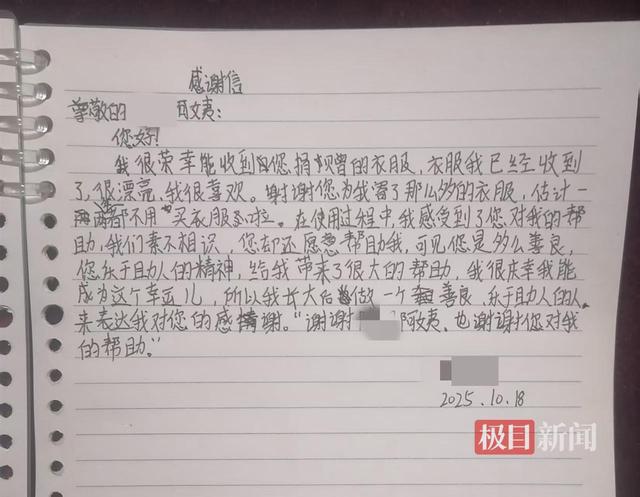 感谢信
尊敬的 阿姨：
您好！
我很荣幸能收到您捐赠的衣服，衣服我已经收到
了，很漂亮，我很喜欢。谢谢您为我寄了那么多的衣服，估计一
两都不用买衣服啦。在使用过程中，我感受到了您对我的帮
助，我们素不相识，您却还愿意帮助我，可见您是多么善良，
您乐于助人的精神，给我带来了很大的帮助，我很庆幸我能
成为这个幸运儿，所以我长大后做一个善良、乐于助人的人。
来表达我对您的感谢。“谢谢 阿姨，也谢谢您对我
的帮助。”
2025.10.18
极目新闻